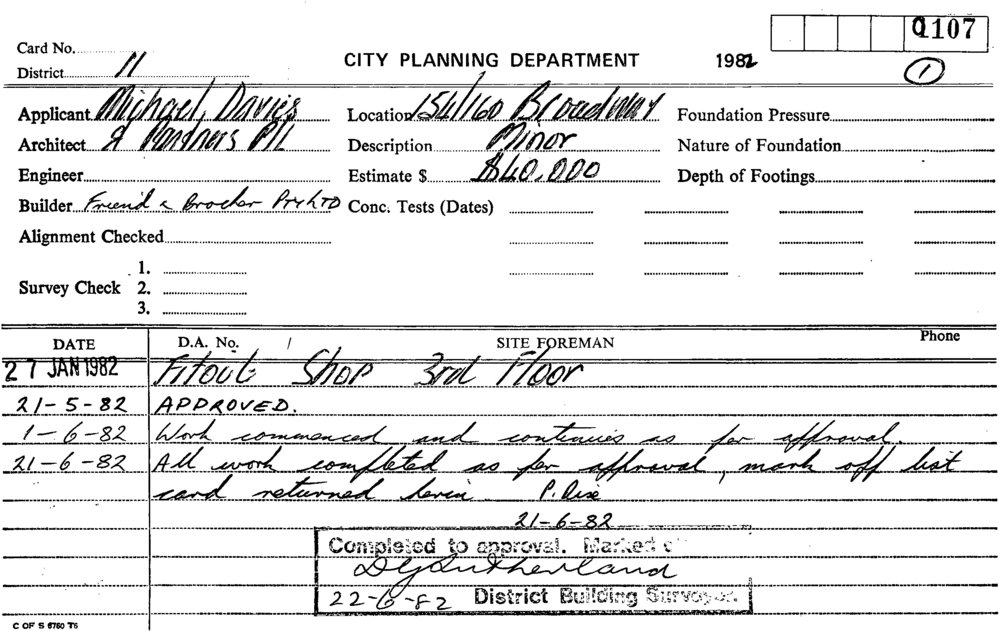 0107
Card No.
CITY PLANNING DEPARTMENT 1982
District 11
1
Applicant Michael Davies Location 154/160 Broadway Foundation Pressure
Architect & Partners P/L Description Minor Nature of Foundation
Engineer Estimate $ $40,000 Depth of Footings
Builder Friend & Brocker Pty LTD Conc. Tests (Dates)
Alignment Checked
1.
Survey Check 2.
3.
DATE D.A. No. / SITE FOREMAN Phone
27 JAN 1982 Fitout Shop 3rd Floor
21-5-82 APPROVED.
1-6-82 Work commenced and continues as per approval.
21-6-82 All work completed as per approval, mark off list
card returned herein P.
21-6-82
Completed to approval. Marked
DGSutherland
22-6-82 District Building Surveyor.
C OF S 6760 T6